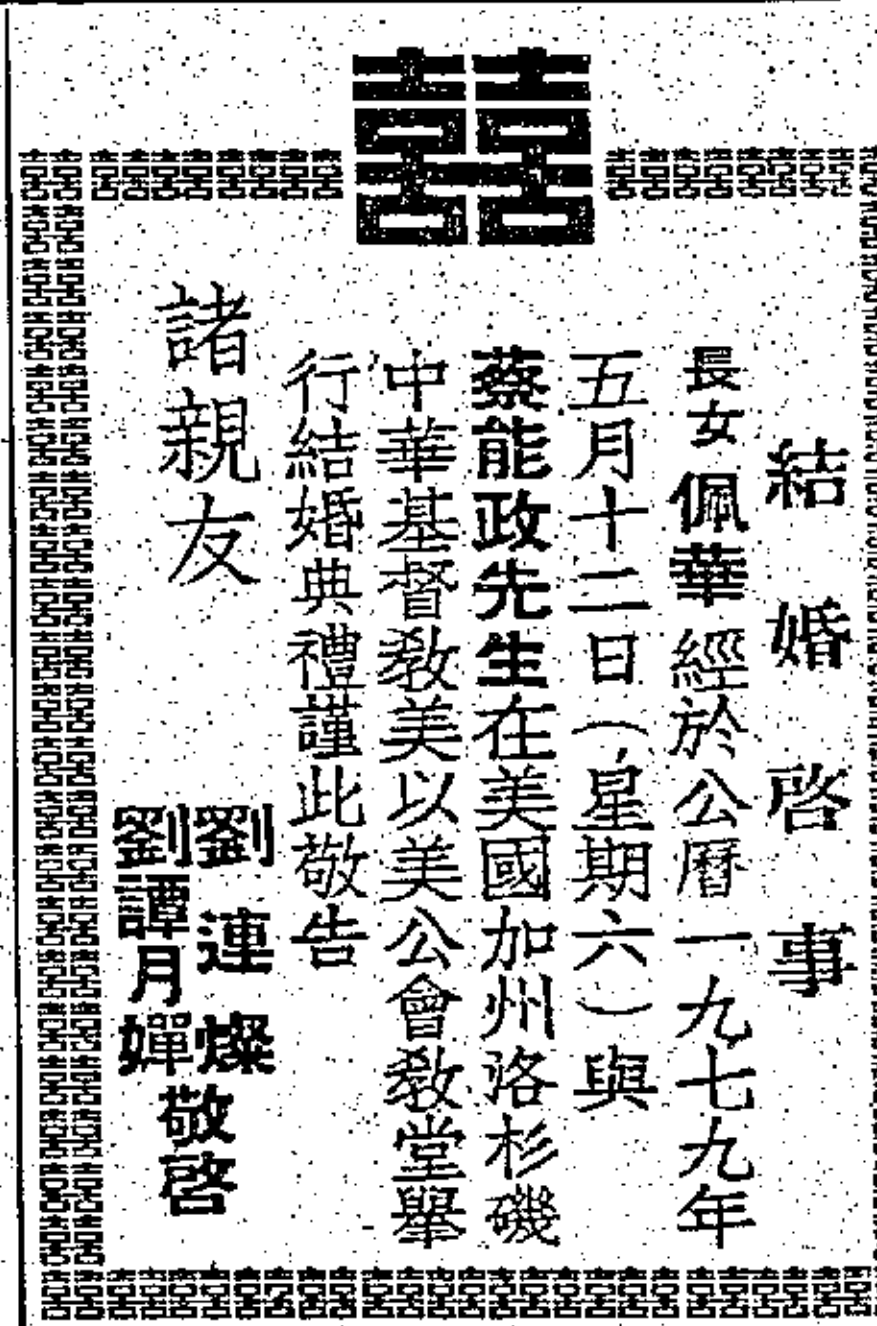 囍
結婚啓事
長女佩華經於公曆一九七九年
五月十二日（星期六）與
蔡能政先生在美國加州洛杉磯
中華基督教美以美公會教堂舉
行結婚典禮謹此敬告
諸親友
劉連燦
劉譚月嬋
敬啓